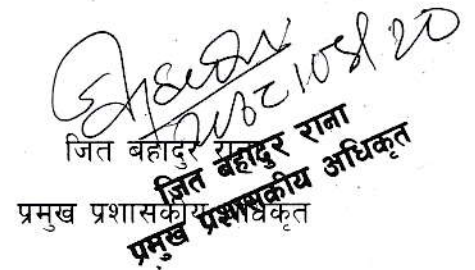 २०८२।०४।२०
जित बहादुर राना
प्रमुख प्रशासकीय अधिकृत
जित बहादुर राना
प्रमुख प्रशासकीय अधिकृत